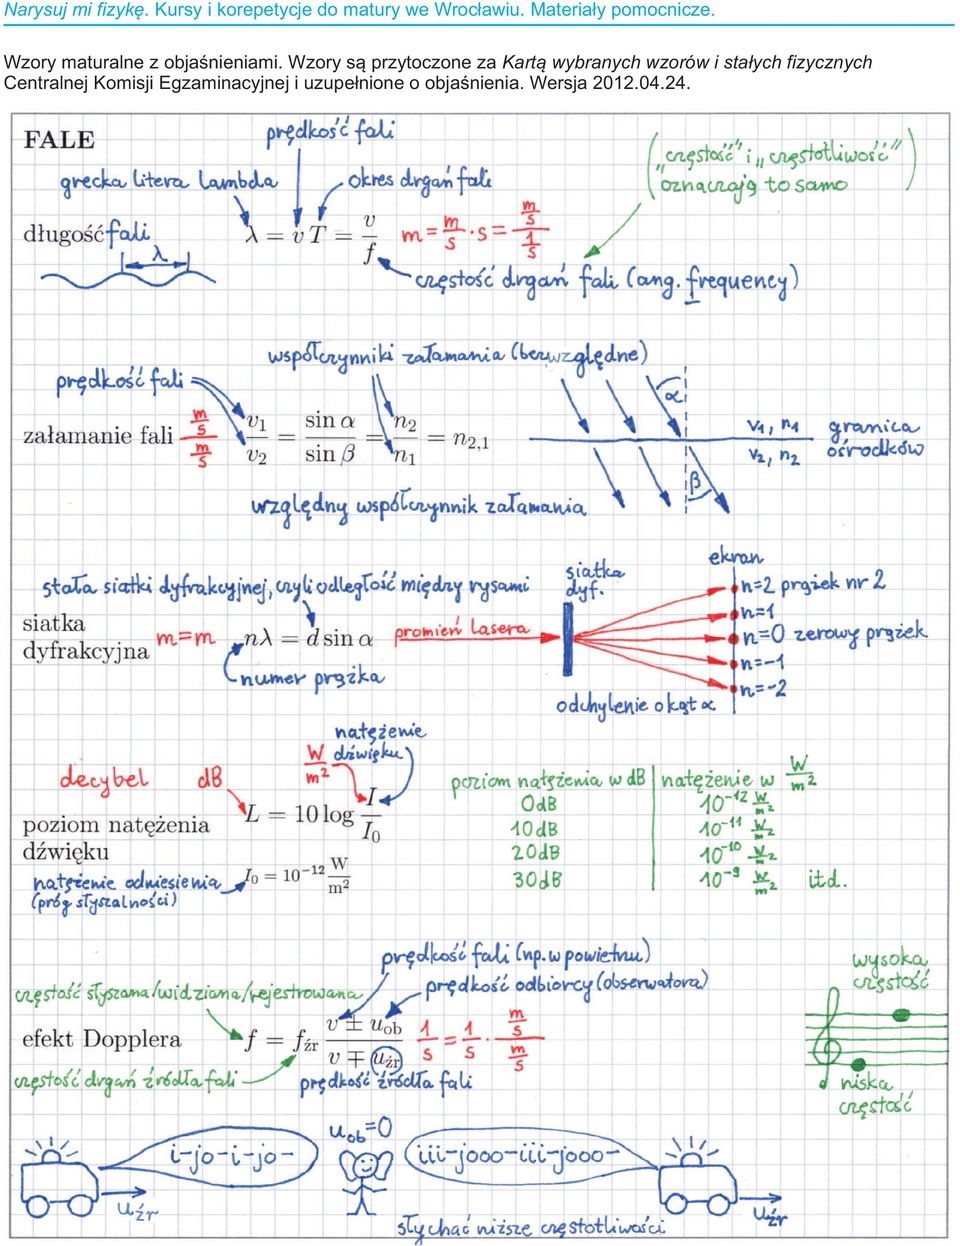 Narysuj mi fizykę. Kursy i korepetycje do matury we Wrocławiu. Materiały pomocnicze.
Wzory maturalne z objaśnieniami. Wzory są przytoczone za Kartą wybranych wzorów i stałych fizycznych
Centralnej Komisji Egzaminacyjnej i uzupełnione o objaśnienia. Wersja 2012.04.24.
FALE
prędkość fali
grecka litera lambda
okres drgań fali
("częstość" i „częstotliwość”
oznaczają to samo)
długość fali
λ = v T = v/f
m = m/s · s = (m/s)/(1/s)
λ
częstość drgań fali (ang. frequency)
współczynniki załamania (bezwzględne)
prędkość fali
α
załamanie fali
m/s / m/s
v₁/v₂ = sin α/sin β = n₂/n₁ = n₂,₁
v₁, n₁
v₂, n₂
granica
ośrodków
β
względny współczynnik załamania
stała siatki dyfrakcyjnej, czyli odległość między rysami
siatka
dyf.
ekran
n=2 prążek nr 2
n=1
n=0 zerowy prążek
n=-1
n=-2
siatka
dyfrakcyjna
m=m
nλ = d sin α
promień lasera
numer prążka
odchylenie o kąt α
natężenie
dźwięku
W/m²
decybel dB
poziom natężenia
dźwięku
L = 10 log I/I₀
natężenie odniesienia
(próg słyszalności)
I₀ = 10⁻¹² W/m²
poziom natężenia w dB | natężenie w W/m²
0dB | 10⁻¹² W/m²
10dB | 10⁻¹¹ W/m²
20dB | 10⁻¹⁰ W/m²
30dB | 10⁻⁹ W/m² itd.
prędkość fali (np. w powietrzu)
prędkość odbiorcy (obserwatora)
częstość słyszana/widziana/rejestrowana
efekt Dopplera
f = fźr (v ± uob)/(v ∓ uźr)
1/s = 1/s · (m/s)/(m/s)
częstość drgań źródła fali
prędkość źródła fali
wysoka
częstość
niska
częstość
uob=0
i-jo-i-jo-
iii-jooo-iii-jooo-
uźr
uźr
słychać niższe częstotliwości